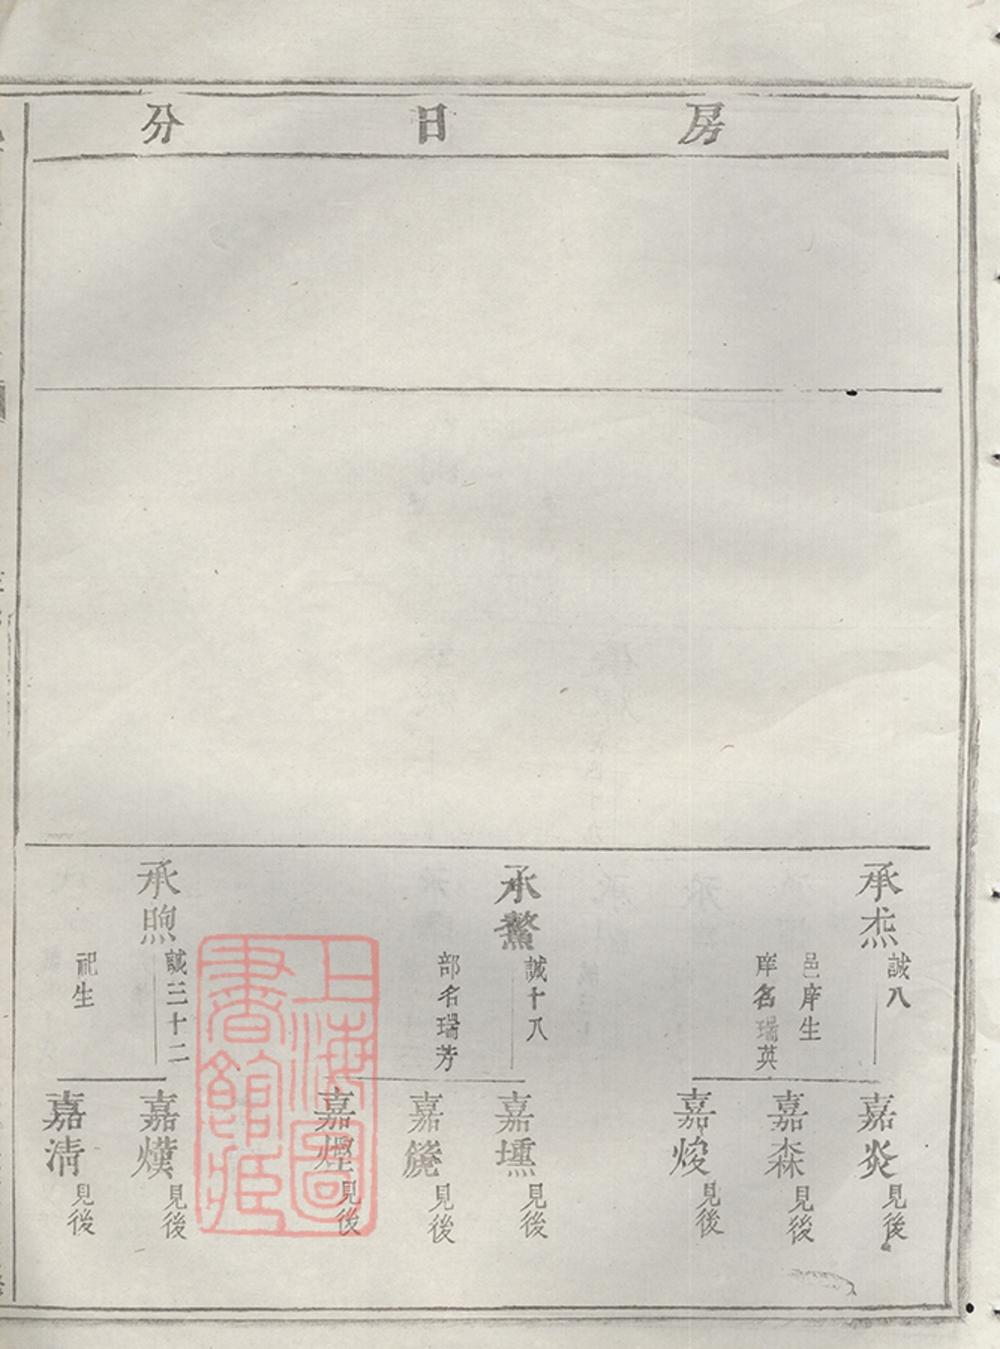 房日分
承𤇆
誠八
邑庠生
庠名瑞英
嘉炎
見後
嘉森
見後
嘉焌
見後
承鰲
誠十八
部名瑞芳
嘉壎
見後
嘉
見後
嘉煙
見後
承煦
誠三十二
祀生
嘉熯
見後
嘉清
見後
上海圖書館藏